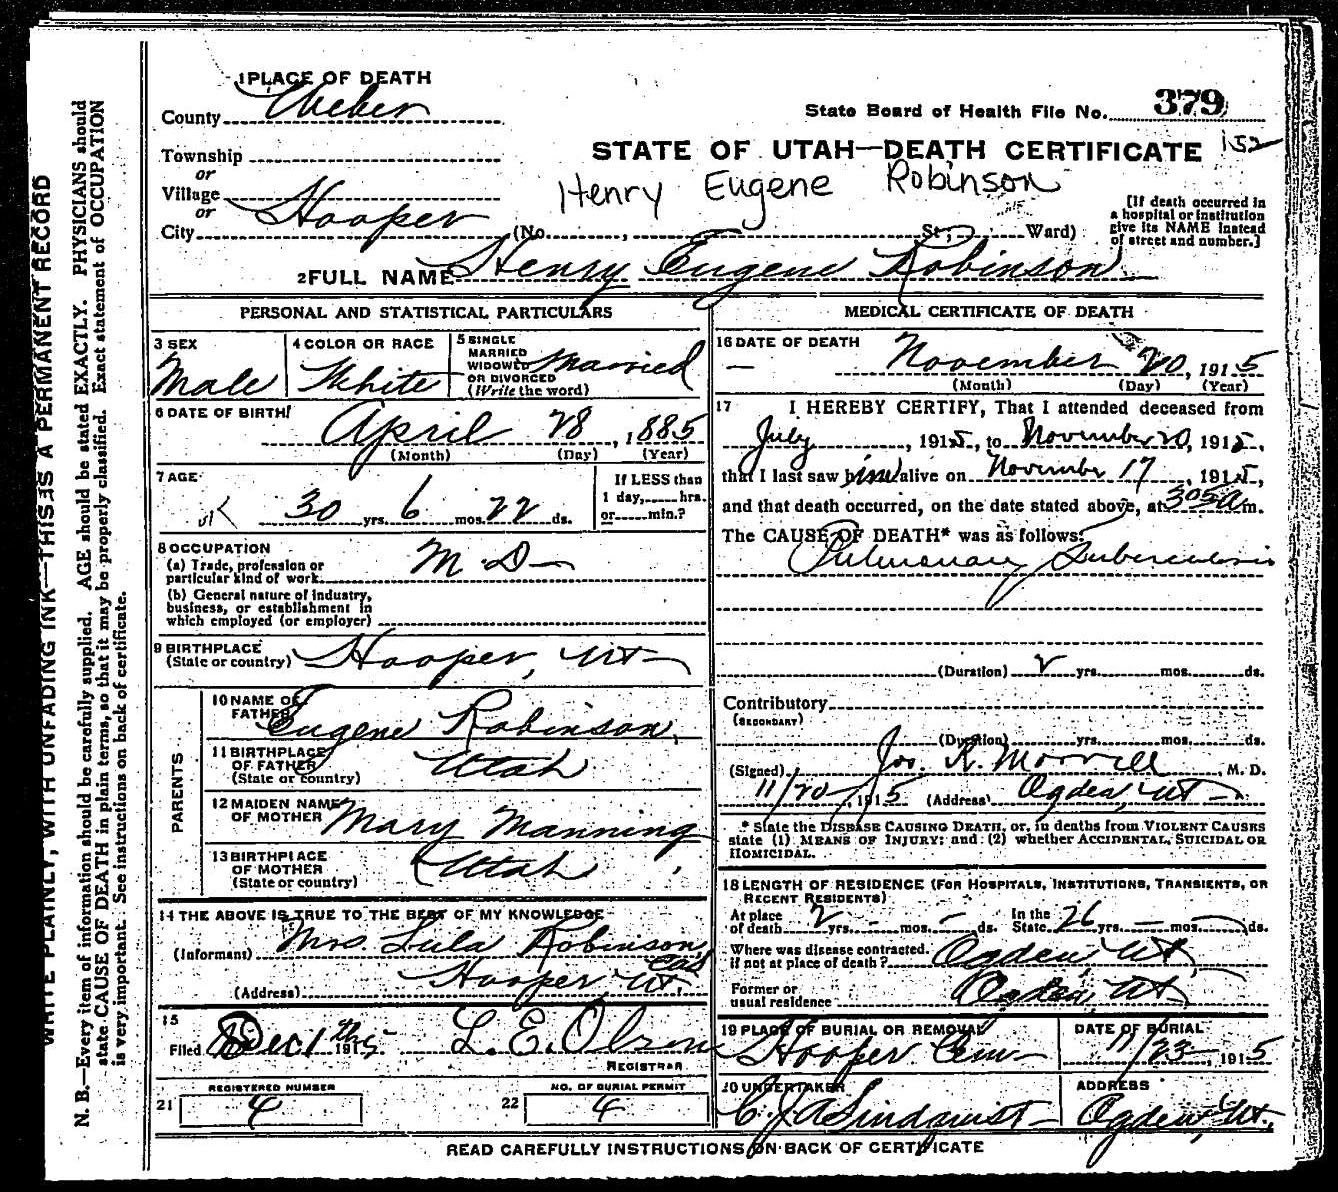 WRITE PLAINLY, WITH UNFADING INK—THIS IS A PERMANENT RECORD
N. B.—Every item of information should be carefully supplied. AGE should be stated EXACTLY. PHYSICIANS should
state CAUSE OF DEATH in plain terms, so that it may be properly classified. Exact statement of OCCUPATION
is very important. See instructions on back of certificate.
1 PLACE OF DEATH
County Weber
State Board of Health File No. 379
Township
or
STATE OF UTAH—DEATH CERTIFICATE 152
Village
or
Henry Eugene Robinson
City Hooper (No. , St; Ward)
[If death occurred in
a hospital or institution
give its NAME instead
of street and number.]
2 FULL NAME Henry Eugene Robinson
PERSONAL AND STATISTICAL PARTICULARS
3 SEX
Male
4 COLOR OR RACE
White
5 SINGLE
MARRIED
WIDOWED
OR DIVORCED
(Write the word)
Married
6 DATE OF BIRTH
April 28, 1885
(Month) (Day) (Year)
7 AGE
30 yrs. 6 mos. 22 ds.
If LESS than
1 day, hrs.
or min.?
8 OCCUPATION
(a) Trade, profession or
particular kind of work
M. D—
(b) General nature of industry,
business, or establishment in
which employed (or employer)
9 BIRTHPLACE
(State or country) Hooper, Ut—
PARENTS
10 NAME OF
FATHER
Eugene Robinson,
11 BIRTHPLACE
OF FATHER
(State or country)
Utah
12 MAIDEN NAME
OF MOTHER
Mary Manning
13 BIRTHPLACE
OF MOTHER
(State or country)
Utah
14 THE ABOVE IS TRUE TO THE BEST OF MY KNOWLEDGE
(Informant) Mrs. Lula Robinson,
(Address) Hooper Ut.
15
Filed Dec 1ths 1915 L. E. Olsen
REGISTRAR
REGISTERED NUMBER
21 4
NO. OF BURIAL PERMIT
22 4
MEDICAL CERTIFICATE OF DEATH
16 DATE OF DEATH
— November 20, 1915
(Month) (Day) (Year)
17 I HEREBY CERTIFY, That I attended deceased from
July, 1915, to November 20, 1915,
that I last saw him alive on November 17, 1915,
and that death occurred, on the date stated above, at 305a m.
The CAUSE OF DEATH* was as follows:
Pulmonary Tuberculosis
(Duration) 2 yrs. mos. ds.
Contributory
(SECONDARY)
(Duration) yrs. mos. ds.
(Signed) Jos. R. Morrell, M. D.
11/20, 1915 (Address) Ogden, Ut—
* State the DISEASE CAUSING DEATH, or, in deaths from VIOLENT CAUSES
state (1) MEANS OF INJURY; and (2) whether ACCIDENTAL, SUICIDAL OR
HOMICIDAL.
18 LENGTH OF RESIDENCE (FOR HOSPITALS, INSTITUTIONS, TRANSIENTS, OR
RECENT RESIDENTS)
At place
of death 2 yrs. — mos. — ds.
In the
State 26 yrs. — mos. — ds.
Where was disease contracted,
if not at place of death? Ogden, Ut,
Former or
usual residence Ogden, Ut—
19 PLACE OF BURIAL OR REMOVAL
Hooper Cem—
DATE OF BURIAL
11/23, 1915
20 UNDERTAKER
C. J. A Lindquist—
ADDRESS
Ogden, Ut.
READ CAREFULLY INSTRUCTIONS ON BACK OF CERTIFICATE